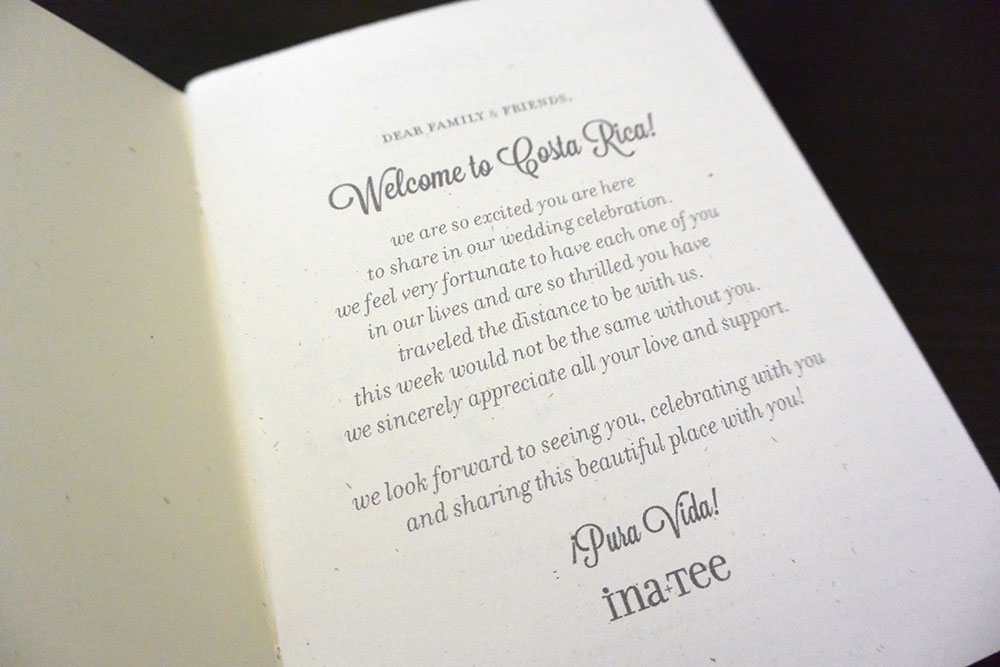 DEAR FAMILY & FRIENDS,
Welcome to Costa Rica!
we are so excited you are here
to share in our wedding celebration.
we feel very fortunate to have each one of you
in our lives and are so thrilled you have
traveled the distance to be with us.
this week would not be the same without you.
we sincerely appreciate all your love and support.
we look forward to seeing you, celebrating with you
and sharing this beautiful place with you!
¡Pura Vida!
ina+Tee